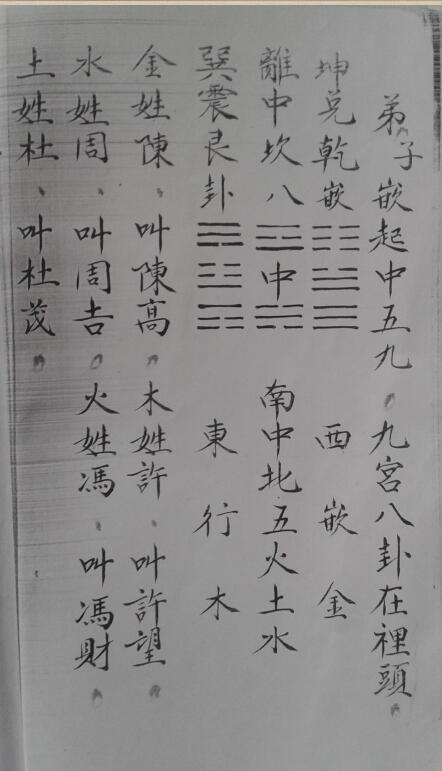 弟子嵌起中五九。九宮八卦在裡頭。
坤兌乾嵌☷☱☰西嵌金
離中坎八☲中☵南中北五火土水
巽震艮卦☴☳☶東行木
金姓陳、叫陳高。木姓許、叫許望。
水姓周、叫周吉。火姓馮、叫馮財。
土姓杜、叫杜茂。